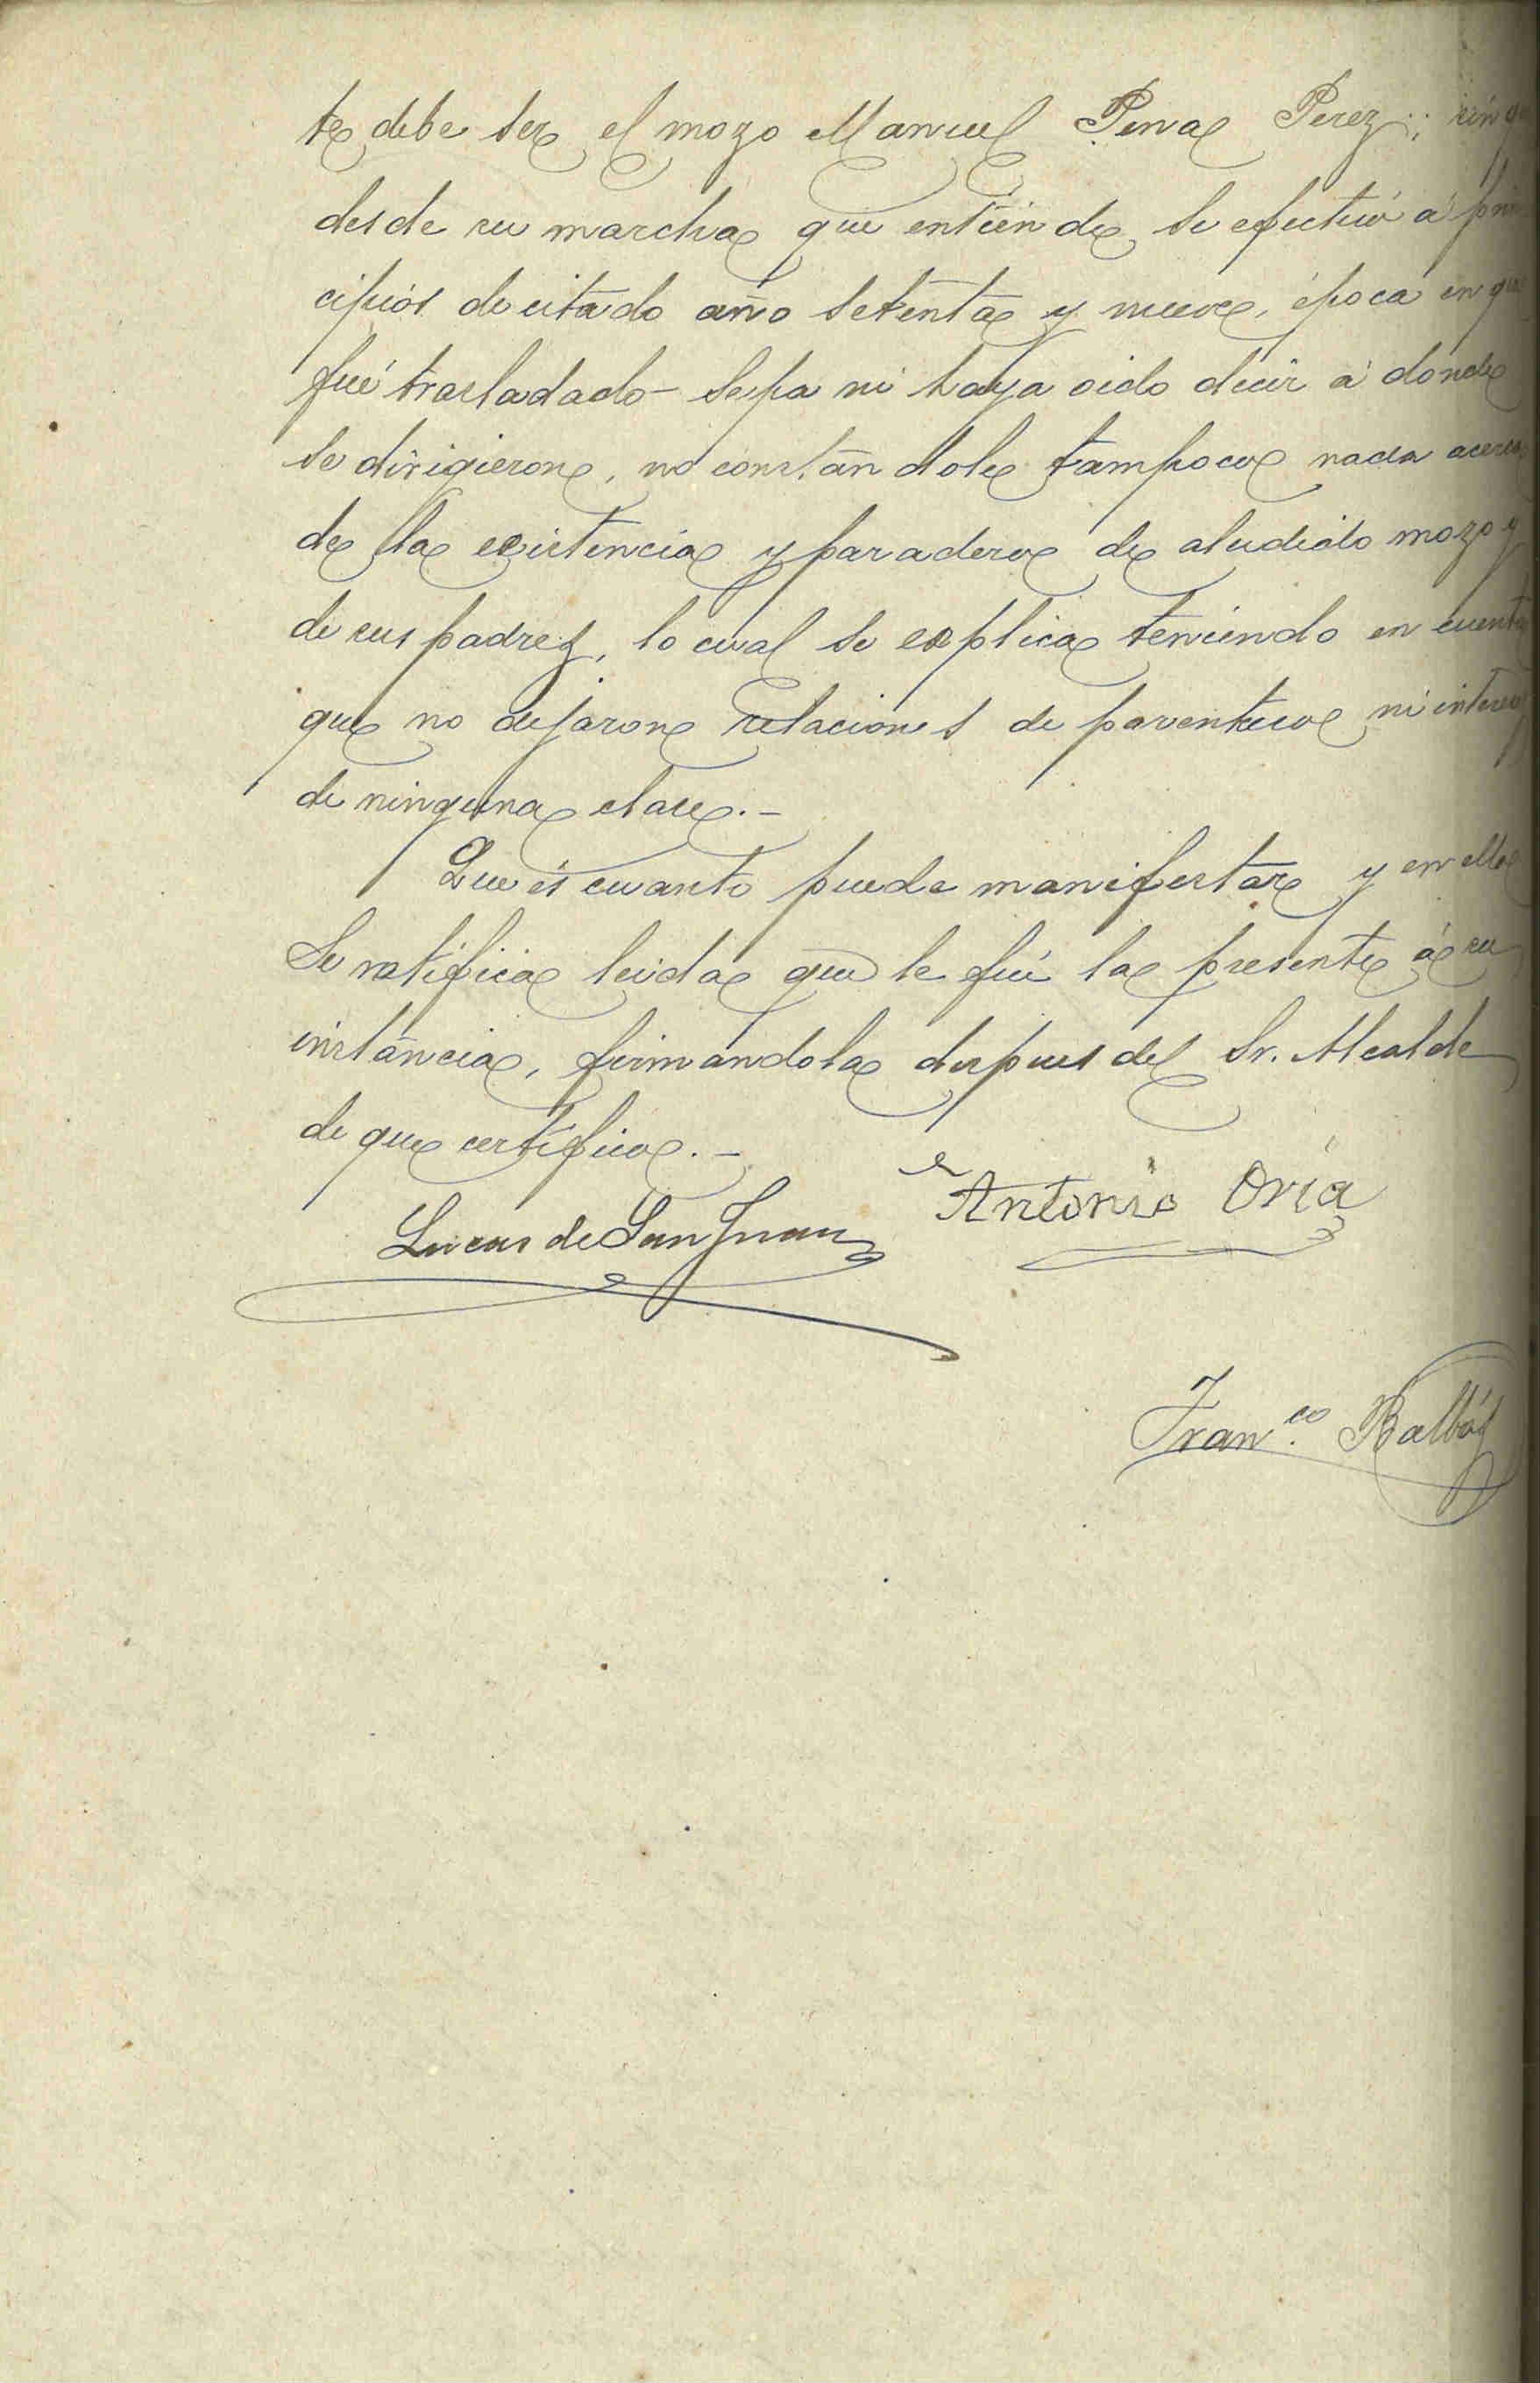 te debe ser el mozo Manuel Pena Perez; sin q
desde su marcha que entiende se efectuó á prin
cipios de citado año setenta y nueve, época en que
fué trasladado- sepa ni haya oido decir á donde
se dirigieron, no constándole tampoco nada acerca
de la existencia y paradero de aludido mozo y
de sus padres, lo cual se explica teniendo en cuenta
que no dejaron relaciones de parentesco ni interes
de ninguna clase.-
Que és cuanto puede manifestar y en ello
se ratifica leida que le fué la presente á su
instáncia, firmándola despues del Sr. Alcalde
de que certifico.-
Lucas de San Juan
Antonio Oria
Fran.co Balbás